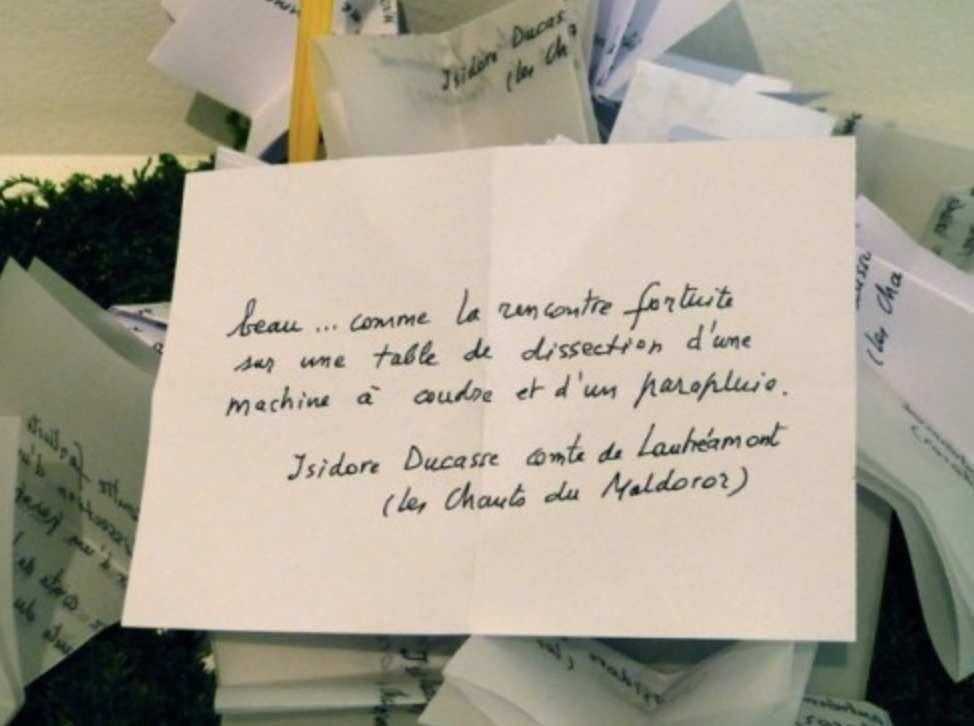 Isidore Ducas
(les Cha
beau... comme la rencontre fortuite
sur une table de dissection d'une
machine à coudre et d'un parapluie.
Isidore Ducasse comte de Lautréamont
(les Chants du Maldoror)
(les Cha